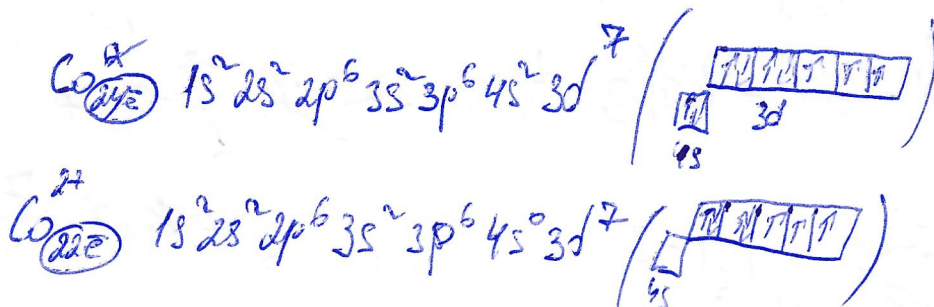 Co 1s² 2s² 2p⁶ 3s² 3p⁶ 4s² 3d⁷ ( 4s 3d )
Co²⁺ 22ē 1s² 2s² 2p⁶ 3s² 3p⁶ 4s⁰ 3d⁷ ( 4s )